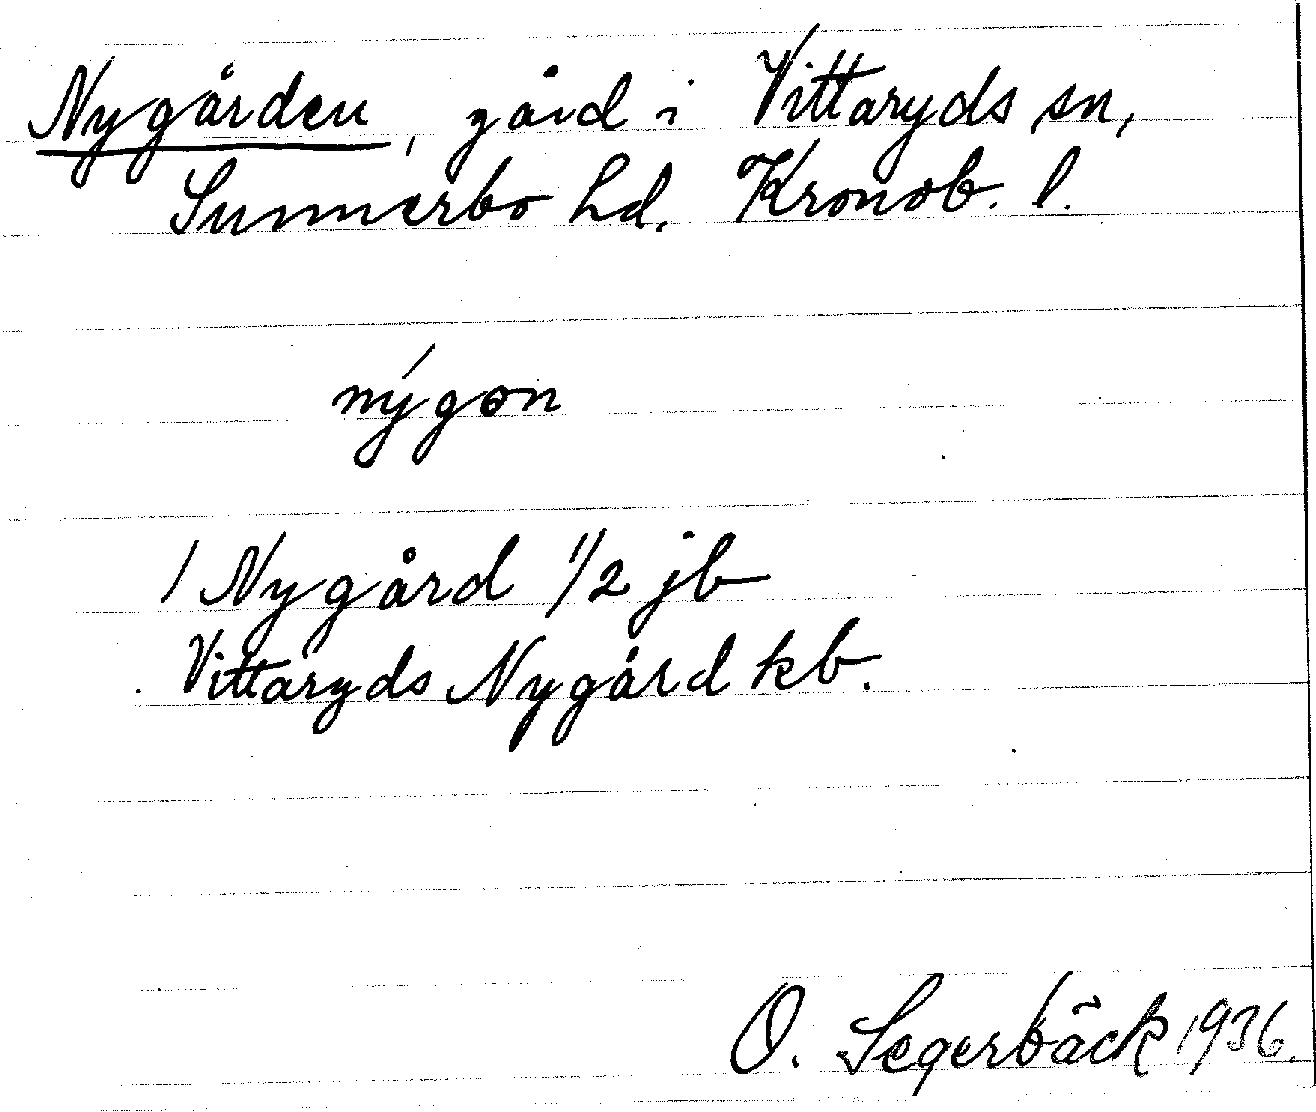 Nygården, gård i Vittaryds sn,
Sunnerbo hd. Kronob. l.
nýgon
1 Nygård 1/2 jb
Vittaryds Nygård kb.
O. Segerbäck 1936.